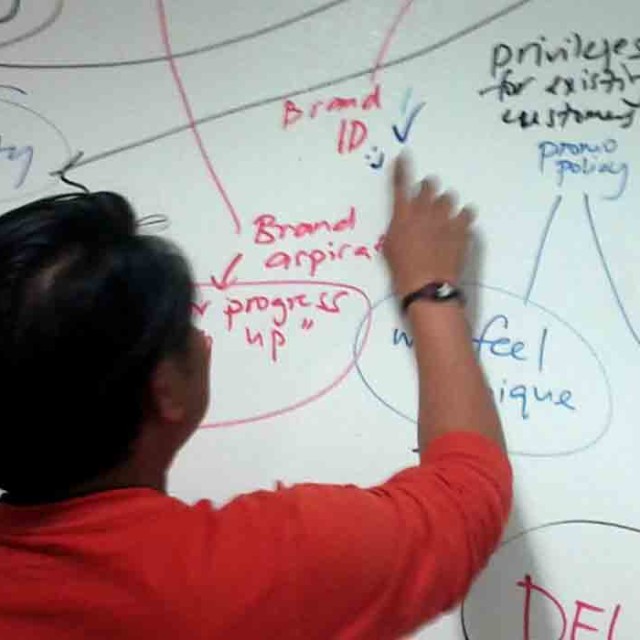 Brand
ID
privileges
for existi
customers
promo
policy
Brand
aspira
progress
up"
feel
ique
DEL